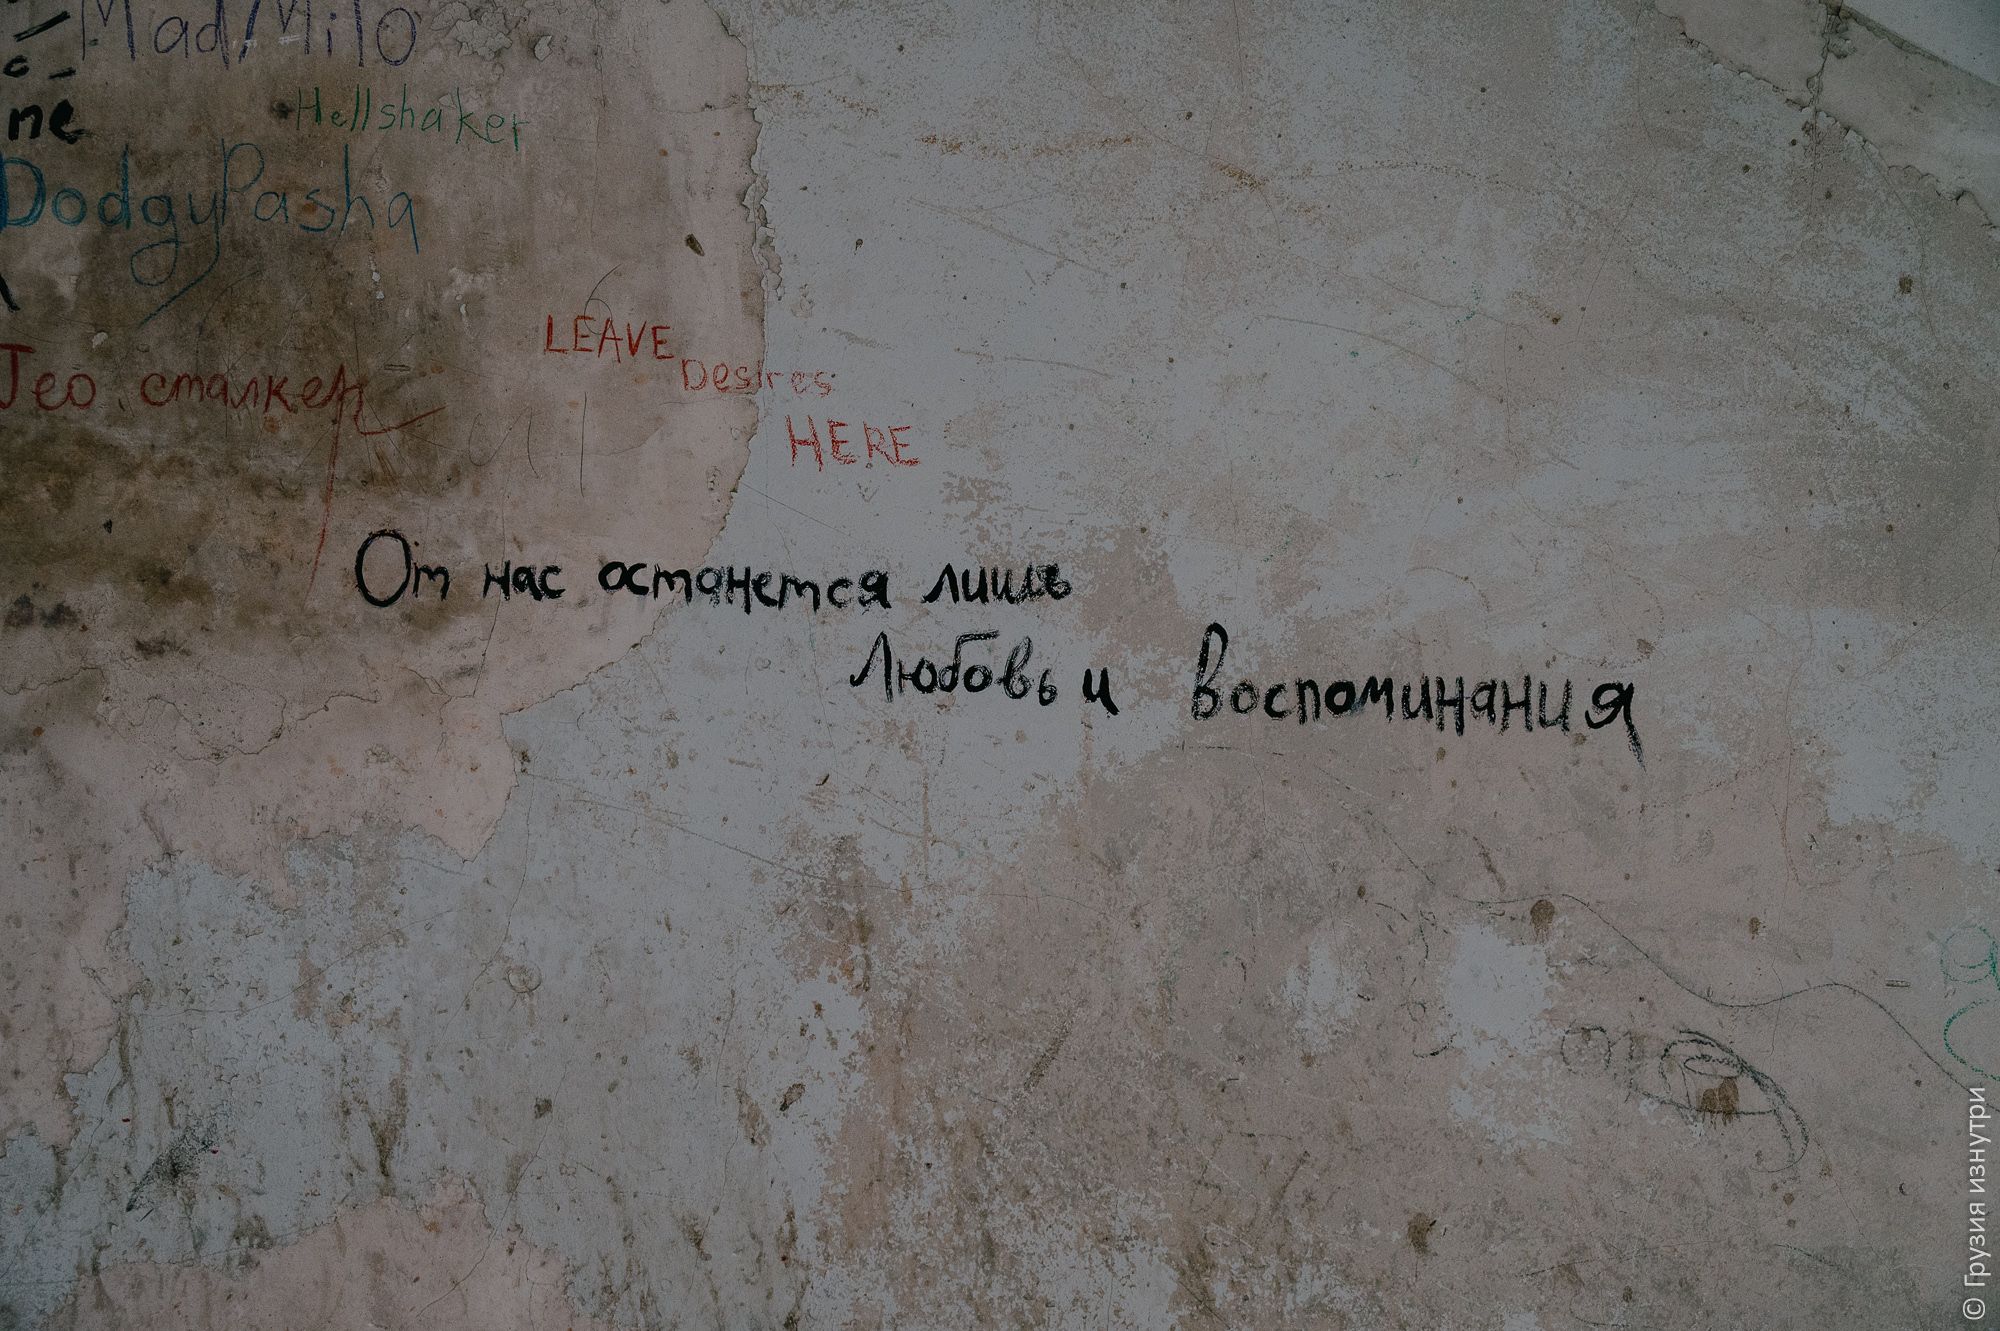 MadMilo
ne
Hellshaker
DodgyPasha
Гео сталкер
LEAVE
Desires
HERE
От нас останется лишь
Любовь и воспоминания
© Грузия изнутри